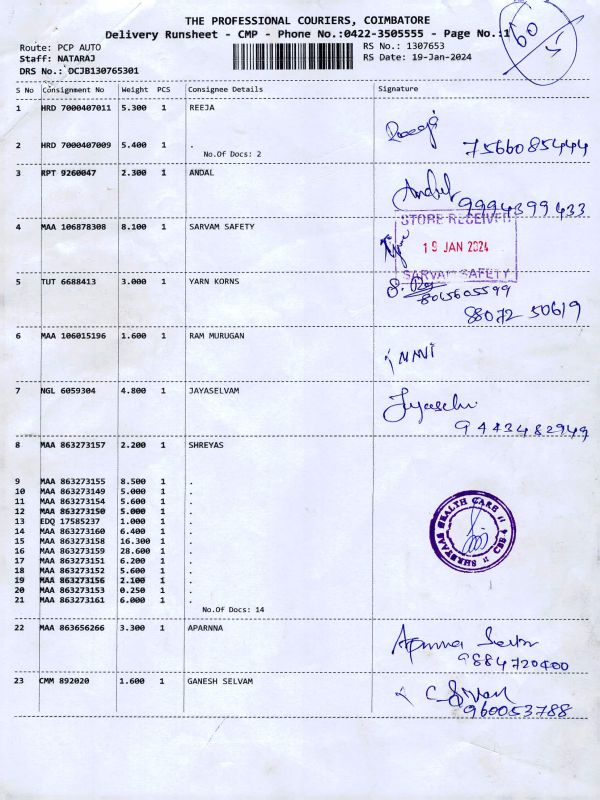 60
5
THE PROFESSIONAL COURIERS, COIMBATORE
Delivery Runsheet - CMP - Phone No.:0422-3505555 - Page No.:1
Route: PCP AUTO
RS No.: 1307653
Staff: NATARAJ
RS Date: 19-Jan-2024
DRS No.: DCJB130765301
S No Consignment No Weight PCS Consignee Details Signature
1 HRD 7000407011 5.300 1 REEJA
Reeja
2 HRD 7000407009 5.400 1 .
7566085444
No.Of Docs: 2
3 RPT 9260047 2.300 1 ANDAL
Andal
9994399433
4 MAA 106878308 8.100 1 SARVAM SAFETY
STORE RECEIVED
19 JAN 2024
SARVAM SAFETY
5 TUT 6688413 3.000 1 YARN KORNS
8065605599
88072 50619
6 MAA 106015196 1.600 1 RAM MURUGAN
MANI
7 NGL 6059304 4.800 1 JAYASELVAM
9443482949
8 MAA 863273157 2.200 1 SHREYAS
9 MAA 863273155 8.500 1 .
10 MAA 863273149 5.000 1 .
11 MAA 863273154 5.600 1 .
12 MAA 863273150 5.000 1 .
13 EDQ 17585237 1.000 1 .
14 MAA 863273160 6.400 1 .
15 MAA 863273158 16.300 1 .
16 MAA 863273159 28.600 1 .
17 MAA 863273151 6.200 1 .
18 MAA 863273152 5.600 1 .
19 MAA 863273156 2.100 1 .
20 MAA 863273153 0.250 1 .
21 MAA 863273161 6.000 1 .
No.Of Docs: 14
HEALTH CARE
22 MAA 863656266 3.300 1 APARNNA
Aparnna
9884720400
23 CMM 892020 1.600 1 GANESH SELVAM
960053788